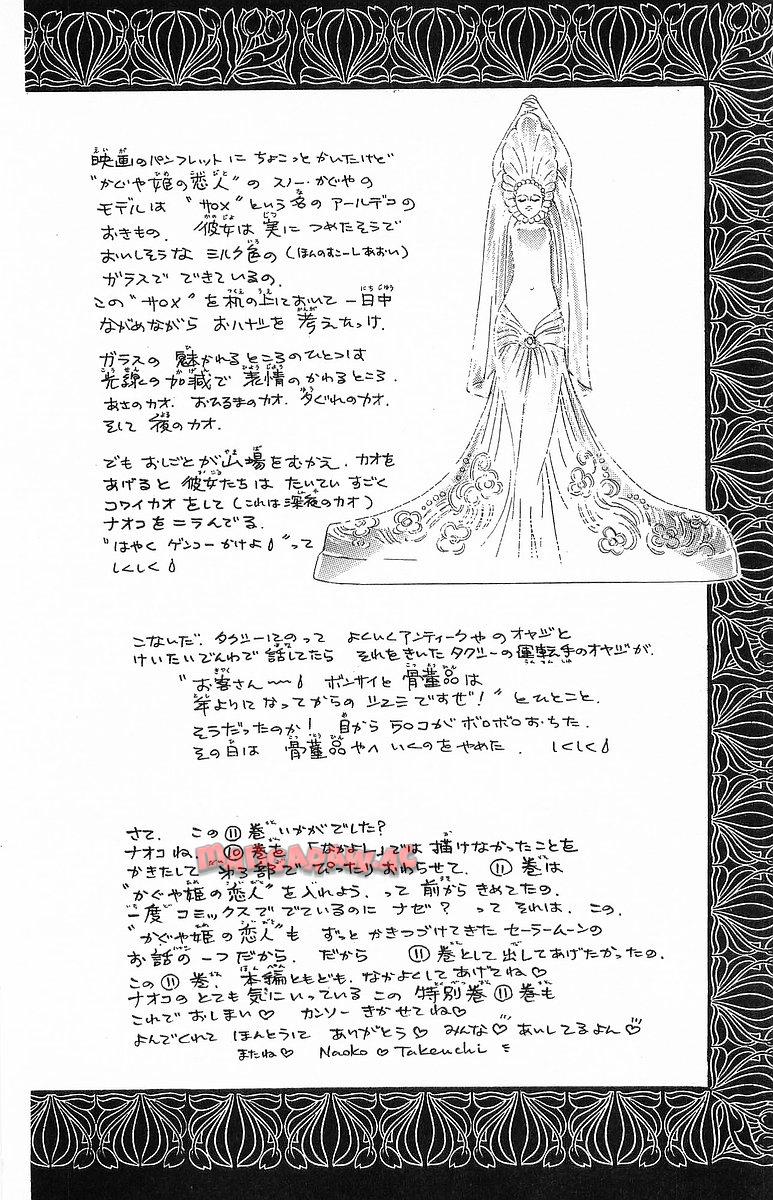 映画のパンフレットに ちょこっとかいたけど
"かぐや姫の恋人" の スノー・かぐやの
モデルは "サロメ" という名の アールデコの
おきもの. 彼女は 実に つめたそうで
おいしそうな ミルク色の (ほんのすこーしあおい)
ガラスで できているの.
この "サロメ" を 机の上において 一日中
ながめながら おハナシを 考えたっけ.
ガラスの 魅かれるところのひとつは
光線の加減で 表情のかわるところ.
あさのカオ. おひるまのカオ. 夕ぐれのカオ.
そして 夜のカオ.
でも おしごとが 山場をむかえ. カオを
あげると 彼女たちは たいてい すごく
コワイカオをして (これは深夜のカオ)
ナオコをニランでる.
"はやく ゲンコーかけよ" って
しくしく
こないだ. タクシーにのって よくいくアンティークやのオヤジと
けいたいでんわで 話してたら それをきいたタクシーの運転手のオヤジが.
"お客さん〜 ボンサイと 骨董品は
年よりになってからの シュミですぜ!" とひとこと.
そうだったのか! 目から ウロコがボロボロおちた.
その日は 骨董品やへ いくのをやめた. しくしく
さて. この ⑪ 巻いかがでした?
ナオコね. ⑩ 巻を 「なかよし」では 描けなかったことを
かきたして 第3部で ぴったりおわらせて. ⑪ 巻は
"かぐや姫の恋人" を入れよう. って 前から きめてたの.
一度 コミックスで でているのに ナゼ? って それは. この.
"かぐや姫の恋人" も ずっと かきつづけてきた セーラームーンの
お話の一つだから. だから ⑪ 巻として出してあげたかったの.
この ⑪ 巻. 本編ともども. なかよくしてあげてね♡
ナオコのとても気にいっている この 特別巻 ⑪ 巻も
これでおしまい♡ カンソー きかせてね♡
よんでくれて ほんとうに ありがとう♡ みんな♡ あいしてるよん♡
またね♡ Naoko ♡ Takeuchi